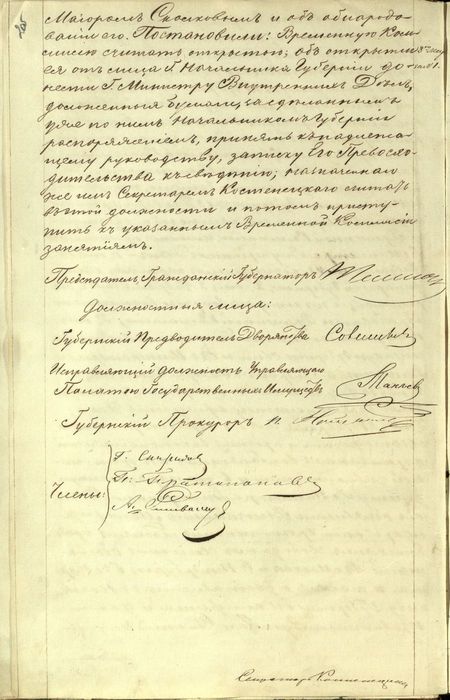 Маіоромъ Сполковымъ и объ обнародо-
ваніи его. Постановили: Временную Ком-
мисію считать открытою; объ открытіи
ея отъ лица Г. Начальника Губерніи до-
нести Г. Министру Внутреннихъ Дѣлъ,
доложенныя бумаги, а сдѣланныя
уже по нимъ Начальникомъ Губерніи
распоряженіемъ, принять къ надлежа-
щему руководству, записку Его Превосхо-
дительства къ свѣдѣнію; назначеннаго
же имъ Секретаремъ Костенецкаго считать
въ этой должности и потомъ присту-
пить къ указаннымъ Временной Коммисіи
занятіямъ.
Предсѣдатель, Гражданскій Губернаторъ
Должностныя лица:
Губернскій Предводитель Дворянства
Исправляющій должность Управляющаго
Палатою Государственныхъ Имуществъ
Губернскій Прокуроръ
Члены:
Секретарь Костенецкій